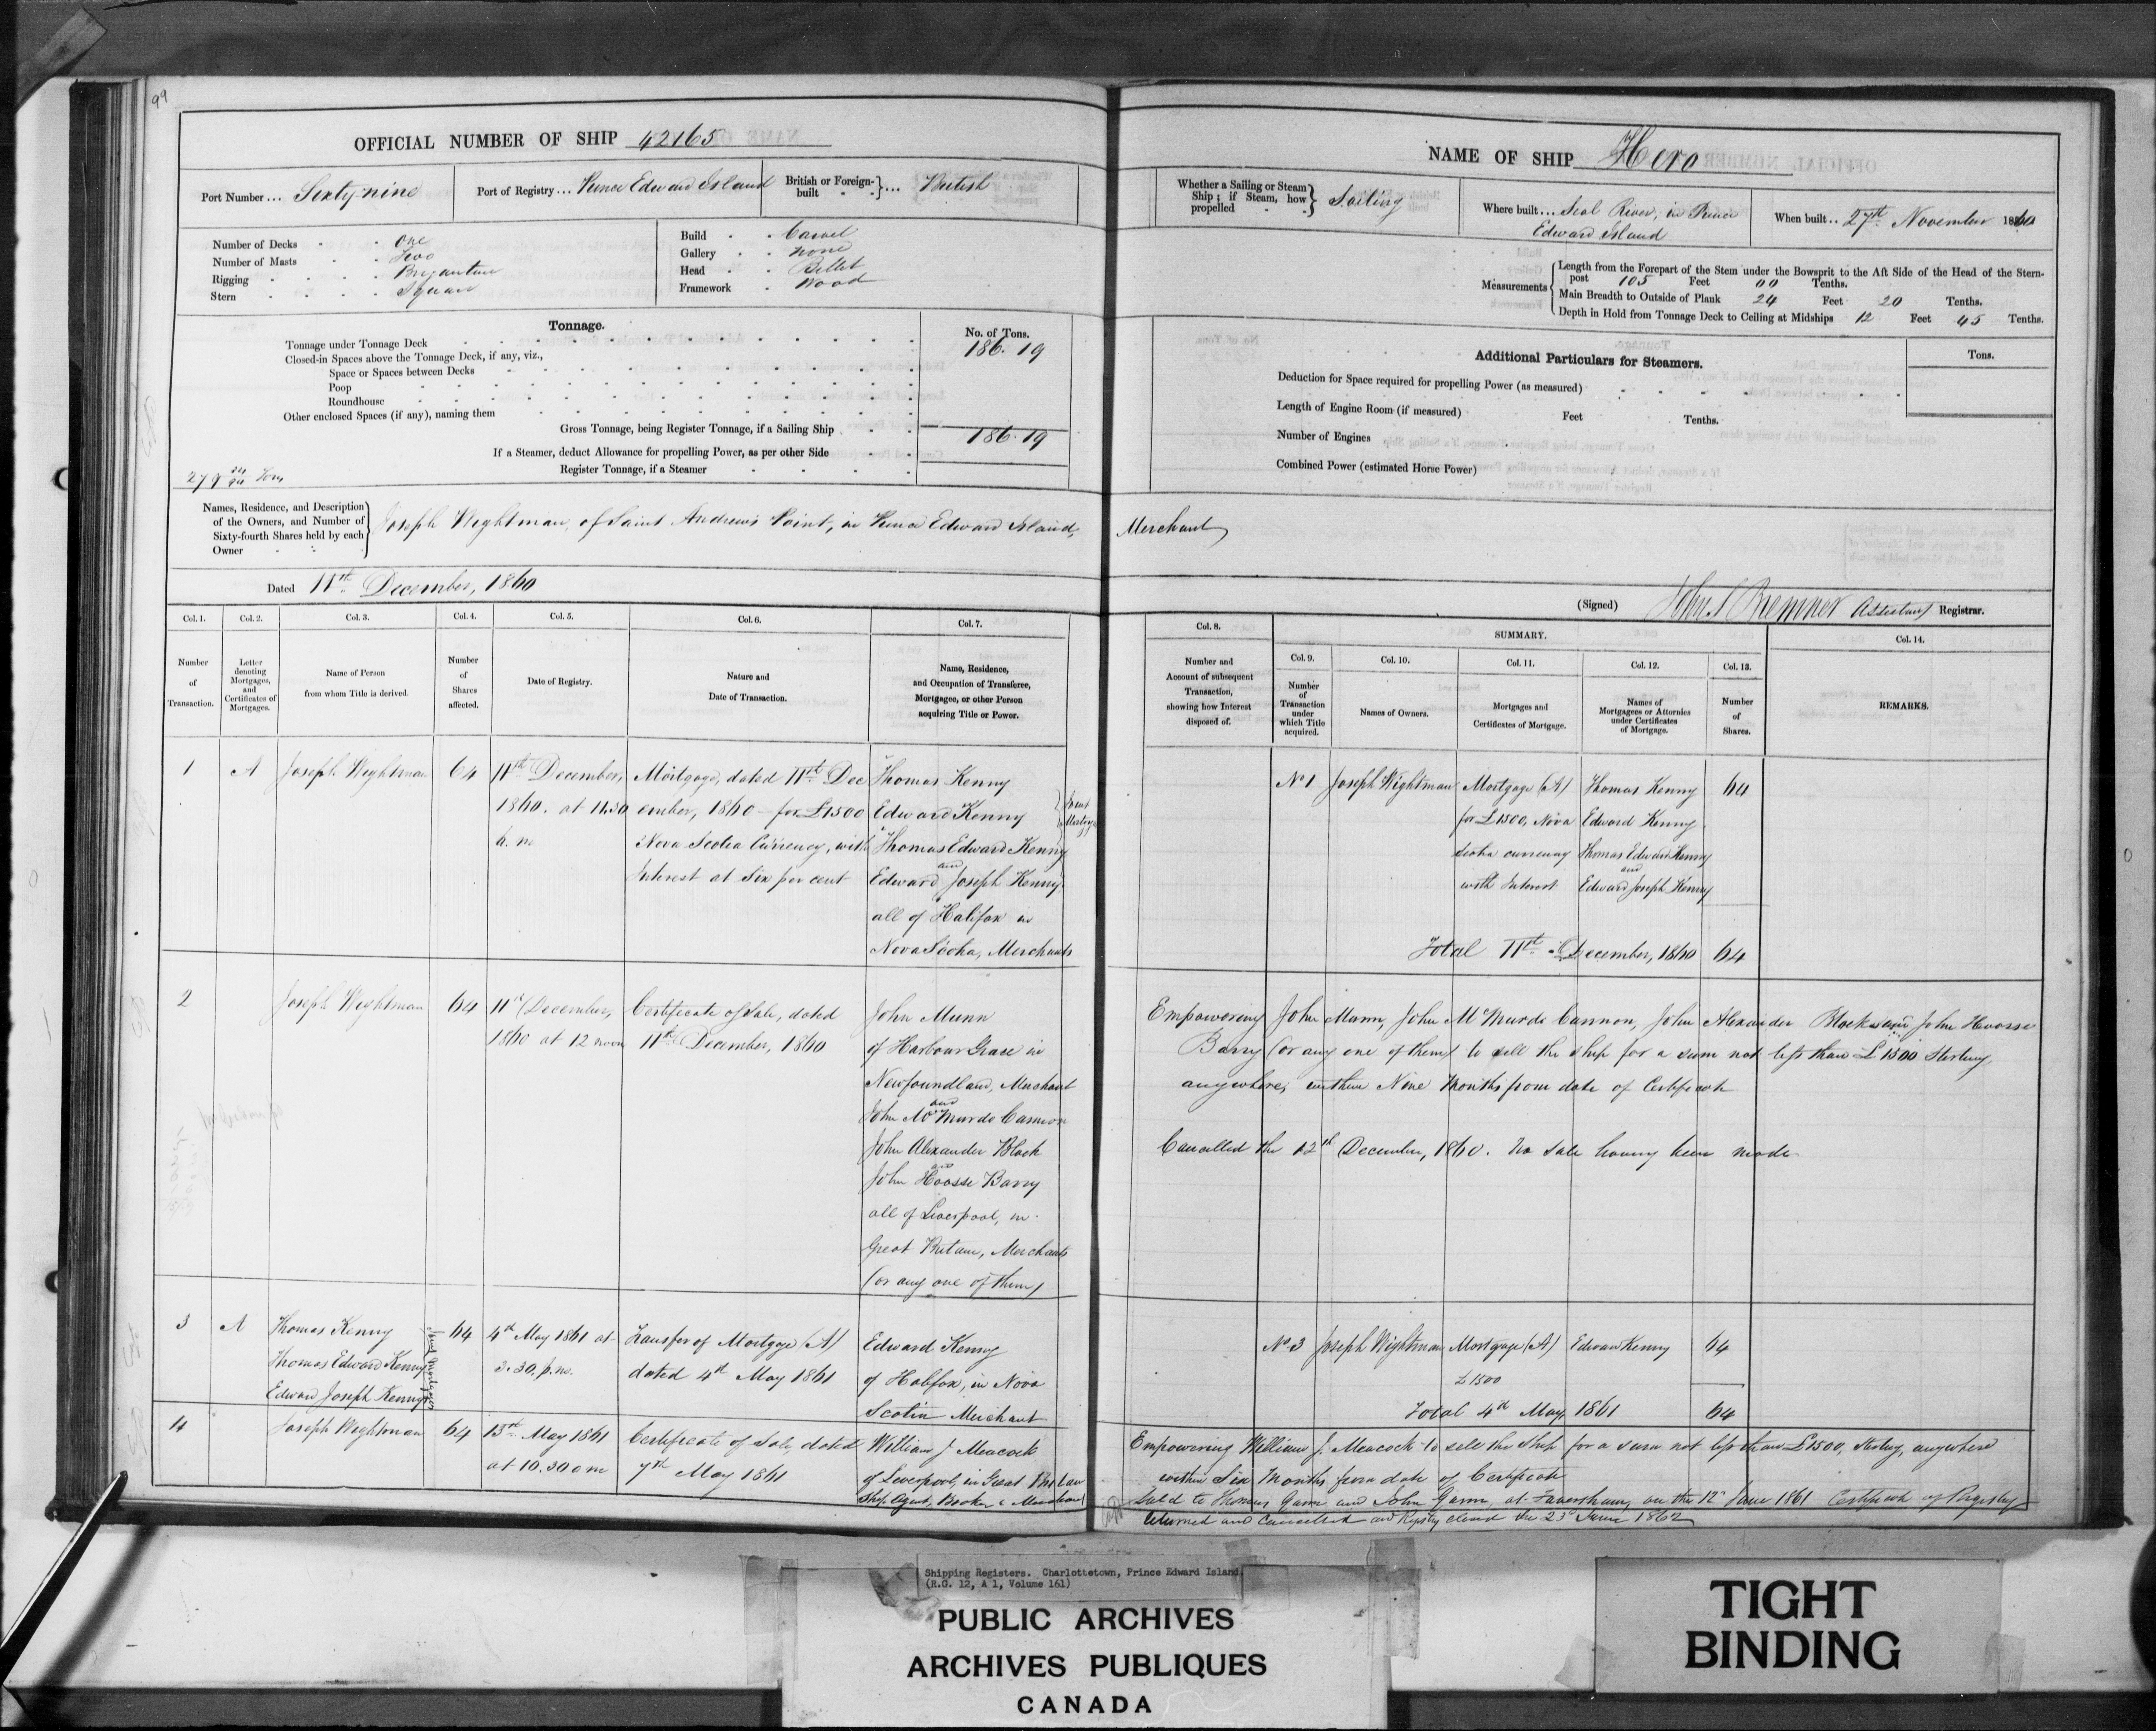 99
OFFICIAL NUMBER OF SHIP 42165
Port Number... Sixty-nine
Port of Registry... Prince Edward Island
British or Foreign-built } ... British
Number of Decks - - one
Number of Masts - - Two
Rigging - - - - Brigantine
Stern - - - - Square
Build - - Carvel
Gallery - - none
Head - - Billet
Framework - Wood
Tonnage.
No. of Tons.
Tonnage under Tonnage Deck 186.19
Closed-in Spaces above the Tonnage Deck, if any, viz.,
Space or Spaces between Decks
Poop
Roundhouse
Other enclosed Spaces (if any), naming them
Gross Tonnage, being Register Tonnage, if a Sailing Ship 186.19
If a Steamer, deduct Allowance for propelling Power, as per other Side
Register Tonnage, if a Steamer
Names, Residence, and Description
of the Owners, and Number of
Sixty-fourth Shares held by each
Owner
Joseph Wightman, of Saint Andrew's Point, in Prince Edward Island, Merchant
Dated 11th December, 1860
NAME OF SHIP Hero
Whether a Sailing or Steam
Ship; if Steam, how
propelled } Sailing
Where built... Seal River, in Prince
Edward Island
When built.. 27th November 1860
Measurements
Length from the Forepart of the Stem under the Bowsprit to the Aft Side of the Head of the Stern-
post 105 Feet 00 Tenths.
Main Breadth to Outside of Plank 24 Feet 20 Tenths.
Depth in Hold from Tonnage Deck to Ceiling at Midships 12 Feet 45 Tenths.
Additional Particulars for Steamers.
Tons.
Deduction for Space required for propelling Power (as measured)
Length of Engine Room (if measured) Feet Tenths.
Number of Engines
Combined Power (estimated Horse Power)
(Signed) John S Bremner Assistant Registrar.
Col. 1.
Number
of
Transaction.
Col. 2.
Letter
denoting
Mortgages,
and
Certificates of
Mortgages.
Col. 3.
Name of Person
from whom Title is derived.
Col. 4.
Number
of
Shares
affected.
Col. 5.
Date of Registry.
Col. 6.
Nature and
Date of Transaction.
Col. 7.
Name, Residence,
and Occupation of Transferee,
Mortgagee, or other Person
acquiring Title or Power.
Col. 8.
Number and
Account of subsequent
Transaction,
showing how Interest
disposed of.
SUMMARY.
Col. 9.
Number
of
Transaction
under
which Title
acquired.
Col. 10.
Names of Owners.
Col. 11.
Mortgages and
Certificates of Mortgage.
Col. 12.
Names of
Mortgagees or Attornies
under Certificates
of Mortgage.
Col. 13.
Number
of
Shares.
Col. 14.
REMARKS.
1
A
Joseph Wightman
64
11th December,
1860. at 11.30
a. m
Mortgage, dated 11th Dec
ember, 1860 - for £1500
Nova Scotia Currency, with
Interest at Six per cent
Thomas Kenny
Edward Kenny
Thomas Edward Kenny
and
Edward Joseph Kenny
all of Halifax in
Nova Scotia, Merchants
Joint
No 1
Joseph Wightman
Mortgage (A)
for £1500, Nova
Scotia currency
with Interest
Thomas Kenny
Edward Kenny
Thomas Edward Kenny
and
Edward Joseph Kenny
64
Total 11th December, 1860 64
2
Joseph Wightman
64
11th December,
1860 at 12 noon
Certificate of Sale, dated
11th December, 1860
John Munn
of Harbour Grace in
Newfoundland, Merchant
and
John McMurdo Cannon
John Alexander Black
and
John Hoosse Barry
all of Liverpool, in
Great Britain, Merchants
(or any one of them)
Empowering John Munn, John McMurdo Cannon, John Alexander Black and John Hoosse
Barry (or any one of them) to sell the ship for a sum not less than £1500 Sterling
anywhere, within Nine Months from date of Certificate
Cancelled the 12th December, 1860. No Sale having been made
3
A
Thomas Kenny
Thomas Edward Kenny
Edward Joseph Kenny
Joint Mortgagees
64
4th May 1861 at
3.30. p.m.
Transfer of Mortgage (A)
dated 4th May 1861
Edward Kenny
of Halifax, in Nova
Scotia Merchant
No 3
Joseph Wightman
Mortgage (A)
£1500
Edward Kenny
64
Total 4th May, 1861 64
4
Joseph Wightman
64
13th May 1861
at 10.30 am
Certificate of Sale dated
7th May 1861
William J Meacock
of Liverpool, in Great Britain
Ship Agent, Broker & Merchant
Empowering William J. Meacock to sell the Ship for a sum not less than £1500, Sterling, anywhere
within Six Months from date of Certificate
Sold to Thomas Gann and John Gann, at Faversham, on the 12th June 1861 Certificate of Registry
returned and Cancelled and Registry closed the 23d June 1862
Shipping Registers. Charlottetown, Prince Edward Island.
(R.G. 12, A 1, Volume 161)
PUBLIC ARCHIVES
ARCHIVES PUBLIQUES
CANADA
TIGHT
BINDING